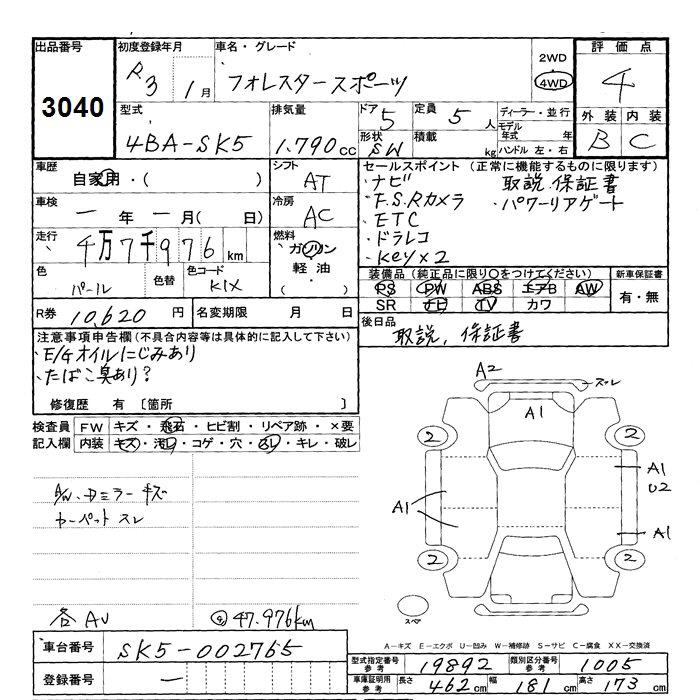 出品番号 初度登録年月 車名・グレード 評価点
3040 R3 1月 フォレスタースポーツ 2WD 4WD 4
型式 排気量 ドア 5 定員 5人 ディーラー・並行 外装 内装
4BA-SK5 1.790cc 形状 SW 積載 kg モデル年式 年 B C
ハンドル 左・右
車歴 シフト セールスポイント (正常に機能するものに限ります)
自家用・( ) AT ・ナビ 取説、保証書
車検 冷房 ・F.S.Rカメラ ・パワーリアゲート
ー年ー月( 日) AC ・ETC
走行 燃料 ・ドラレコ
4万7千976km ガソリン 軽油 ・( ) ・Key×2
色 色替 色コード 装備品 (純正品に限り○をつけてください) 新車保証書
パール K1X PS PW ABS エアB AW 有・無
SR ナビ TV カワ
R券 10,620円 名変期限 月 日 後日品
取説、保証書
注意事項申告欄(不具合内容等は具体的に記入して下さい)
・E/Gオイルにじみあり
・たばこ臭あり?
修復歴 有 [箇所 ]
検査員記入欄 FW キズ・飛石・ヒビ割・リペア跡・×要
内装 キズ・汚レ・コゲ・穴・スレ・キレ・破レ
ミラー キズ
カーペット スレ
各AU
47.976km
A2 スレ
A1
2 2
A1
U2
A1
A1
2 2
スペア
A-キズ E-エクボ U-凹み W-補修跡 S-サビ C-腐食 XX-交換済
車台番号 SK5-002765
登録番号 ー
型式指定番号 参考 19892 類別区分番号 参考 1005
車庫証明用 参考 長さ 462cm 幅 181cm 高さ 173cm